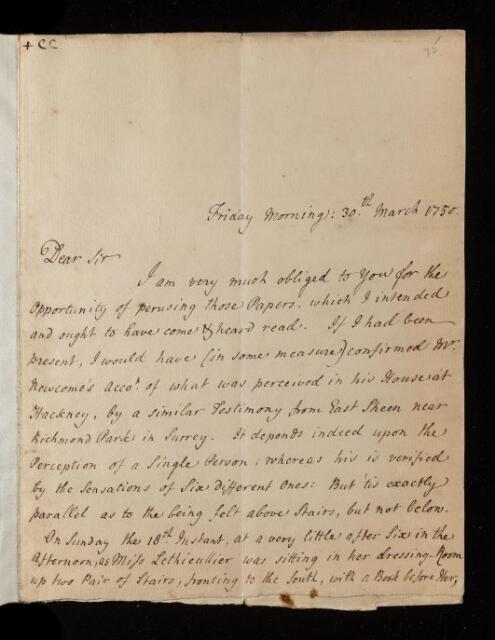 + CC
Friday Morning: 30.th March 1750.
Dear Sir
I am very much obliged to You for the
Opportunity of perusing those Papers, which I intended
and ought to have come & heard read. If I had been
present, I would have (in some measure) confirmed Mr.
Newcome's Acco.t of what was perceived in his House at
Hackney, by a similar Testimony from East Sheen near
Richmond Park in Surrey. It depends indeed upon the
Perception of a Single Person; whereas his is verified
by the Sensations of Six Different Ones: But 'tis exactly
parallel as to the being felt above Stairs, but not below.
On Sunday the 18.th Instant, at a very little after Six in the
Afternoon, as Miss Lethieullier was sitting in her dressing-Room
up two Pair of Stairs, fronting to the South, with a Book before Her,